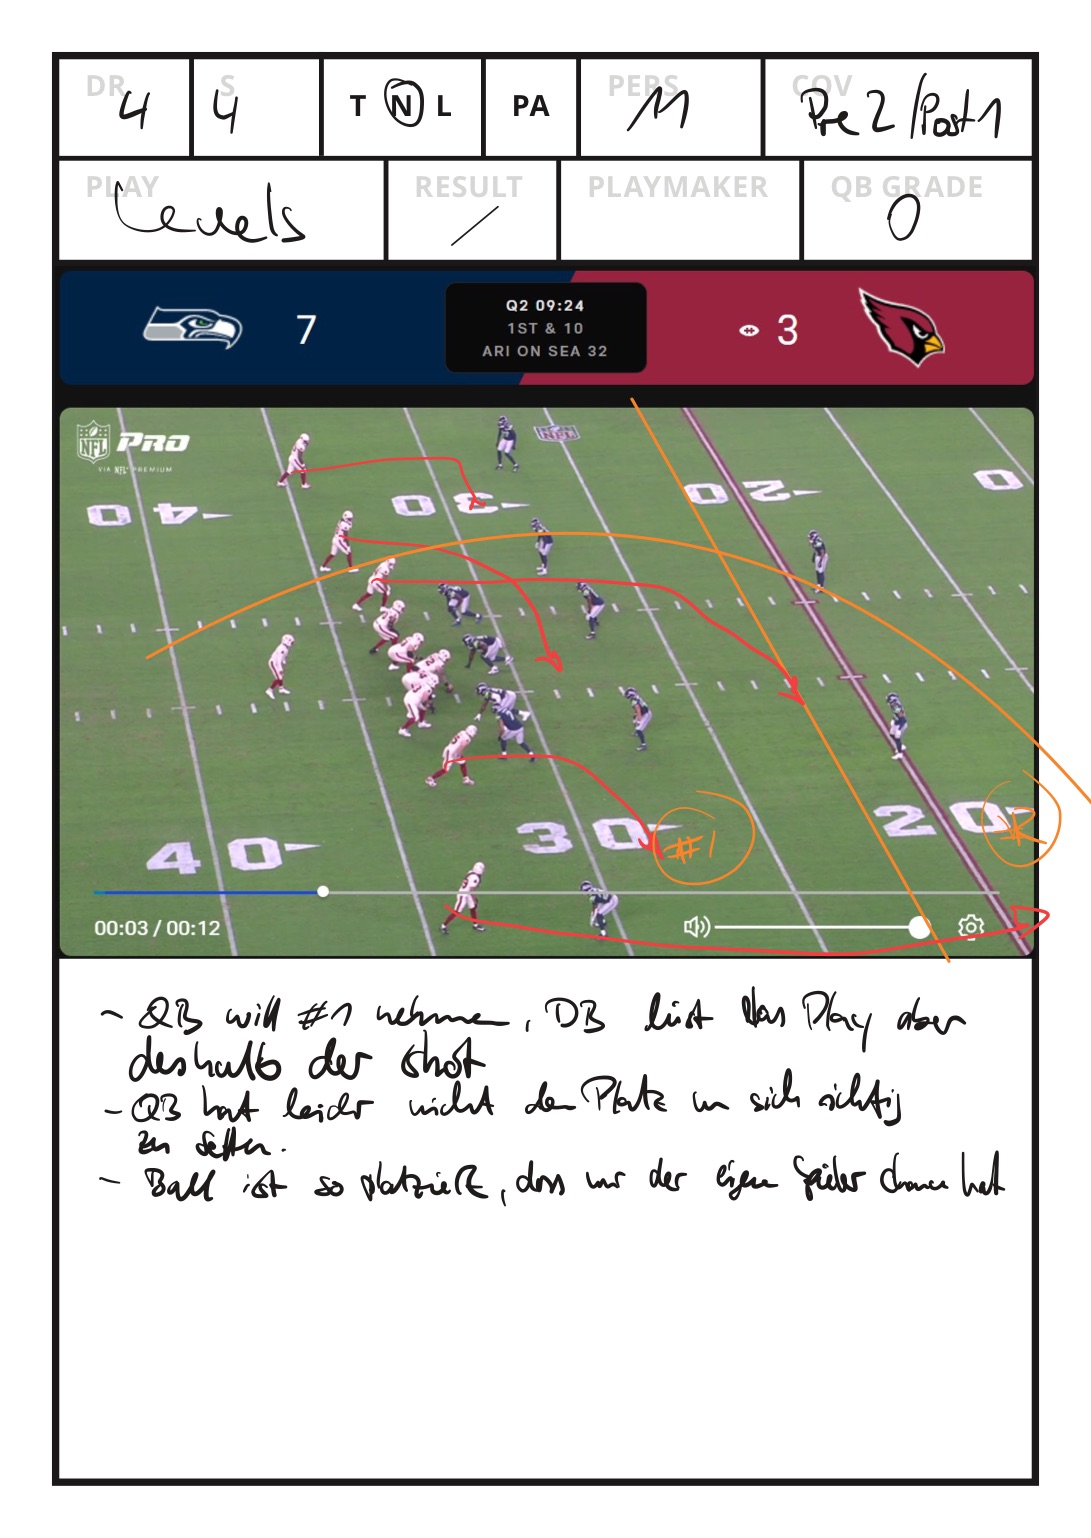 DR 4 S 4 T N L PA PERS 11 COV Pre 2 / Post 1
PLAY Levels RESULT / PLAYMAKER QB GRADE 0
7 Q2 09:24 3
1ST & 10
ARI ON SEA 32
NFL PRO
VIA NFL+ PREMIUM
NFL
4 0 3 0 2 0 0
4 0 3 0 2 0
#1 R
00:03 / 00:12
- QB will #1 nehmen, DB liest das Play aber
deshalb der shot
- QB hat leider nicht den Platz um sich richtig
zu setzen.
- Ball ist so platziert, dass nur der eigene Spieler Chance hat